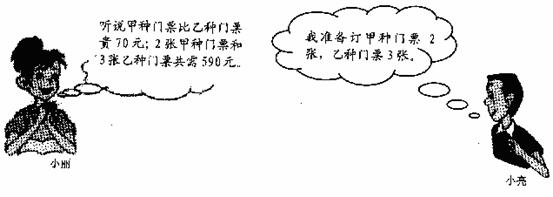 听说甲种门票比乙种门票
贵70元;2张甲种门票和
3张乙种门票共需590元。
我准备订甲种门票 2
张,乙种门票3张。
小丽
小亮